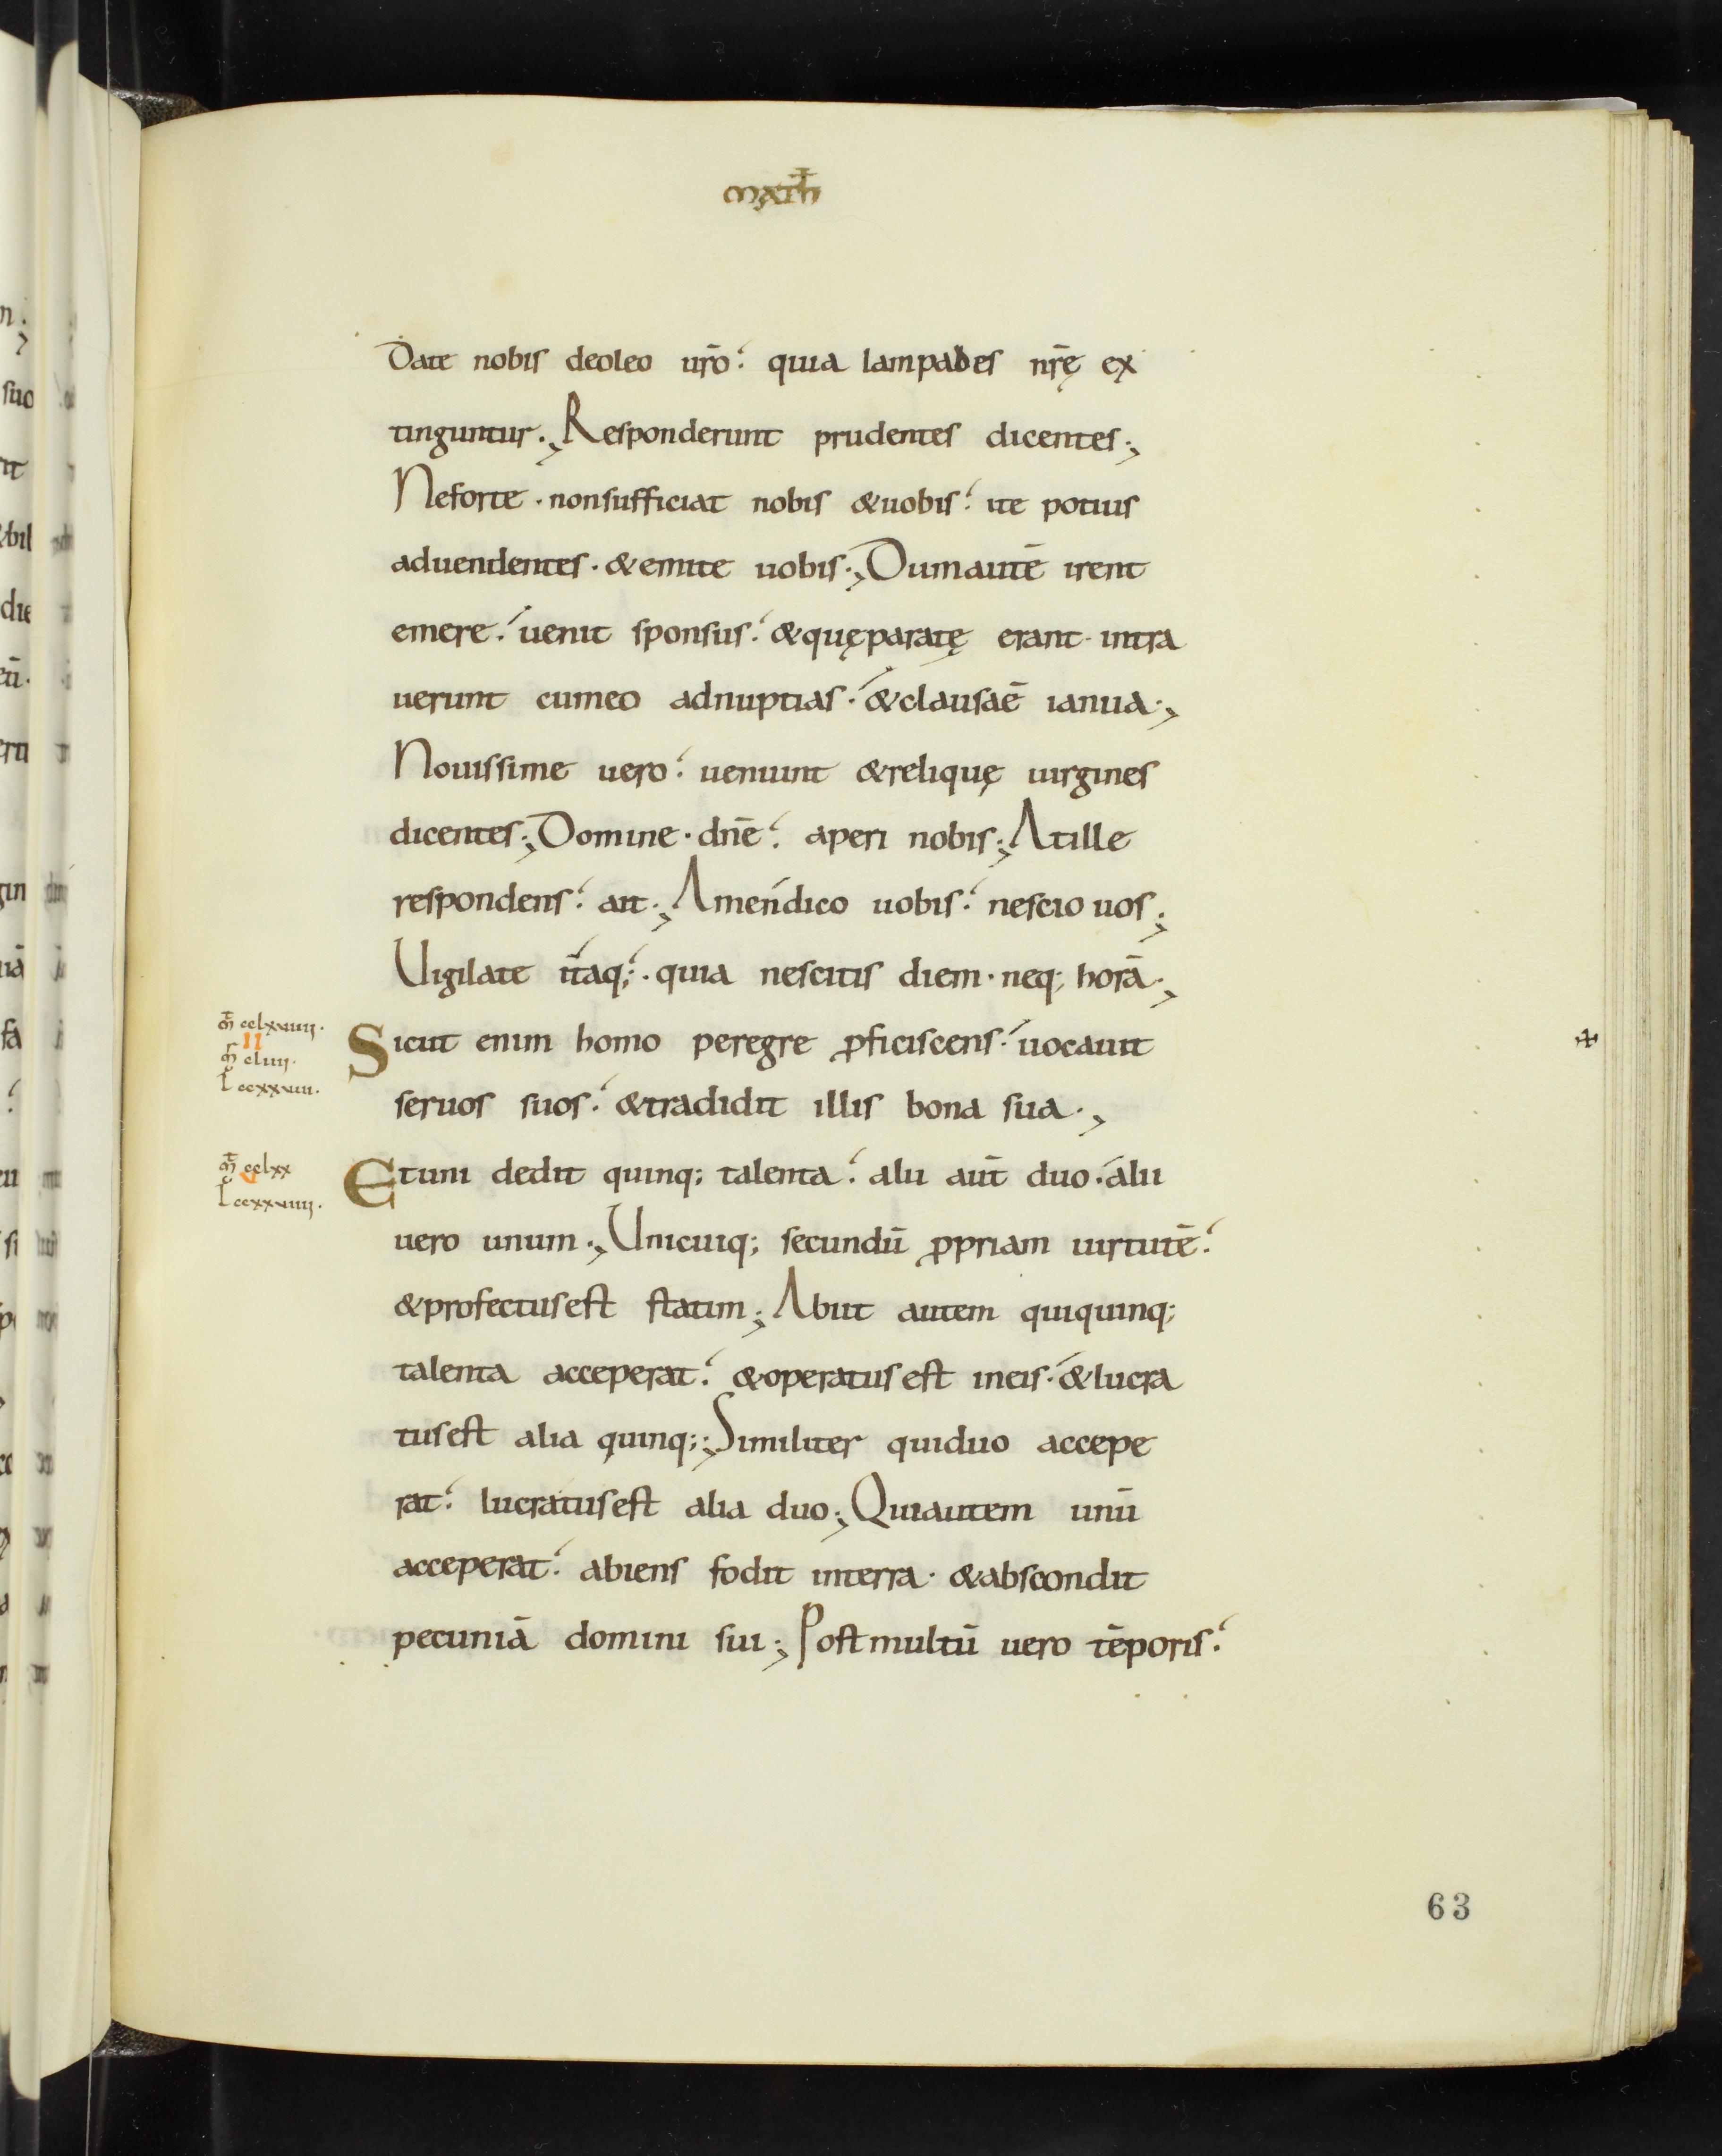 MATH
Date nobis deoleo ur̄o. quia lampades nr̄ę ex
tinguntur., Responderunt prudentes dicentes.,
Neforte · nonsufficiat nobis &uobis. ite potius
aduendentes · &emite uobis., Dumautē irent
emere. uenit sponsus. &quęparatę erant · intra
uerunt cumeo adnuptias · &clausaē ianua.,
Nouissime uero. ueniunt &reliquę uirgines
dicentes., Domine · dn̄e. aperi nobis., Atille
respondens. ait., Amendico uobis. nescio uos.,
Uigilate itaq;. quia nescitis diem · neq; horā.,
m̄ cclxviiii.
II
m̄ cliiii.
L ccxxviii.
Sicut enim homo peregre ꝓficiscens. uocauit
seruos suos. &tradidit illis bona sua.,
m̄ cclxx
V
L ccxxviiii.
Etuni dedit quinq; talenta. alii aut̄ duo. alii
uero unum., Unicuiq; secundū ꝓpriam uirtutē.
&profectusest statim., Abiit autem quiquinq;
talenta acceperat. &operatusest ineis. &lucra
tusest alia quinq;., Similiter quiduo accepe
rat. lucratusest alia duo., Quiautem unū
acceperat. abiens fodit interra · &abscondit
pecuniā domini sui., Postmultū uero tēporis.
63